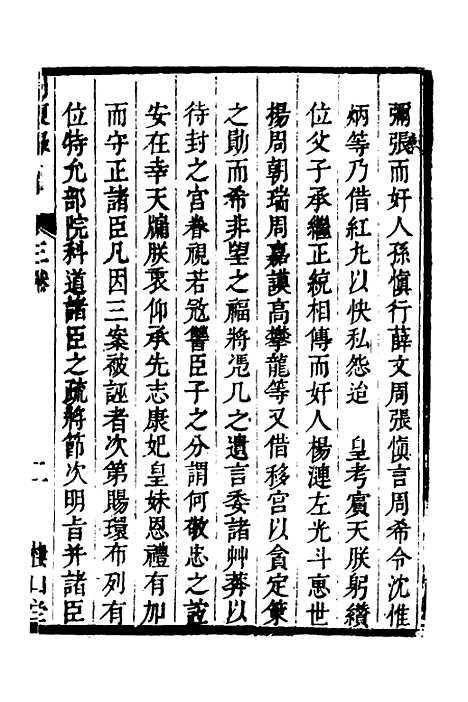 彌張而奸人孫愼行薛文周張愼言周希令沈惟
炳等乃借紅丸以快私怨迨　皇考賓天朕躬纘
位父子承繼正統相傳而奸人楊漣左光斗惠世
揚周朝瑞周嘉謨高攀龍等又借移宮以貪定策
之勛而希非望之福將憑几之遺言委諸艸莽以
待封之宮眷視若寇讐臣子之分謂何敬忠之誼
安在幸天牖朕衷仰承先志康妃皇妹恩禮有加
而守正諸臣凡因三案被誣者次第賜環布列有
位特允部院科道諸臣之疏將節次明旨并諸臣
三卷
二
樓山堂